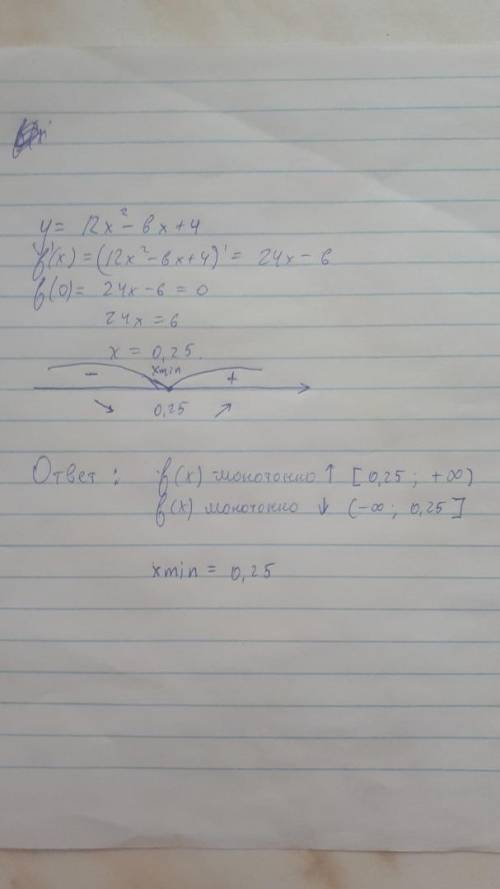 y = 12x² - 6x + 4
f'(x) = (12x² - 6x + 4)' = 24x - 6
f(0) = 24x - 6 = 0
24x = 6
x = 0,25.
xmin
- +
↘ 0,25 ↗
Ответ: f(x) монотонно ↑ [0,25; +∞)
f(x) монотонно ↓ (-∞; 0,25]
xmin = 0,25